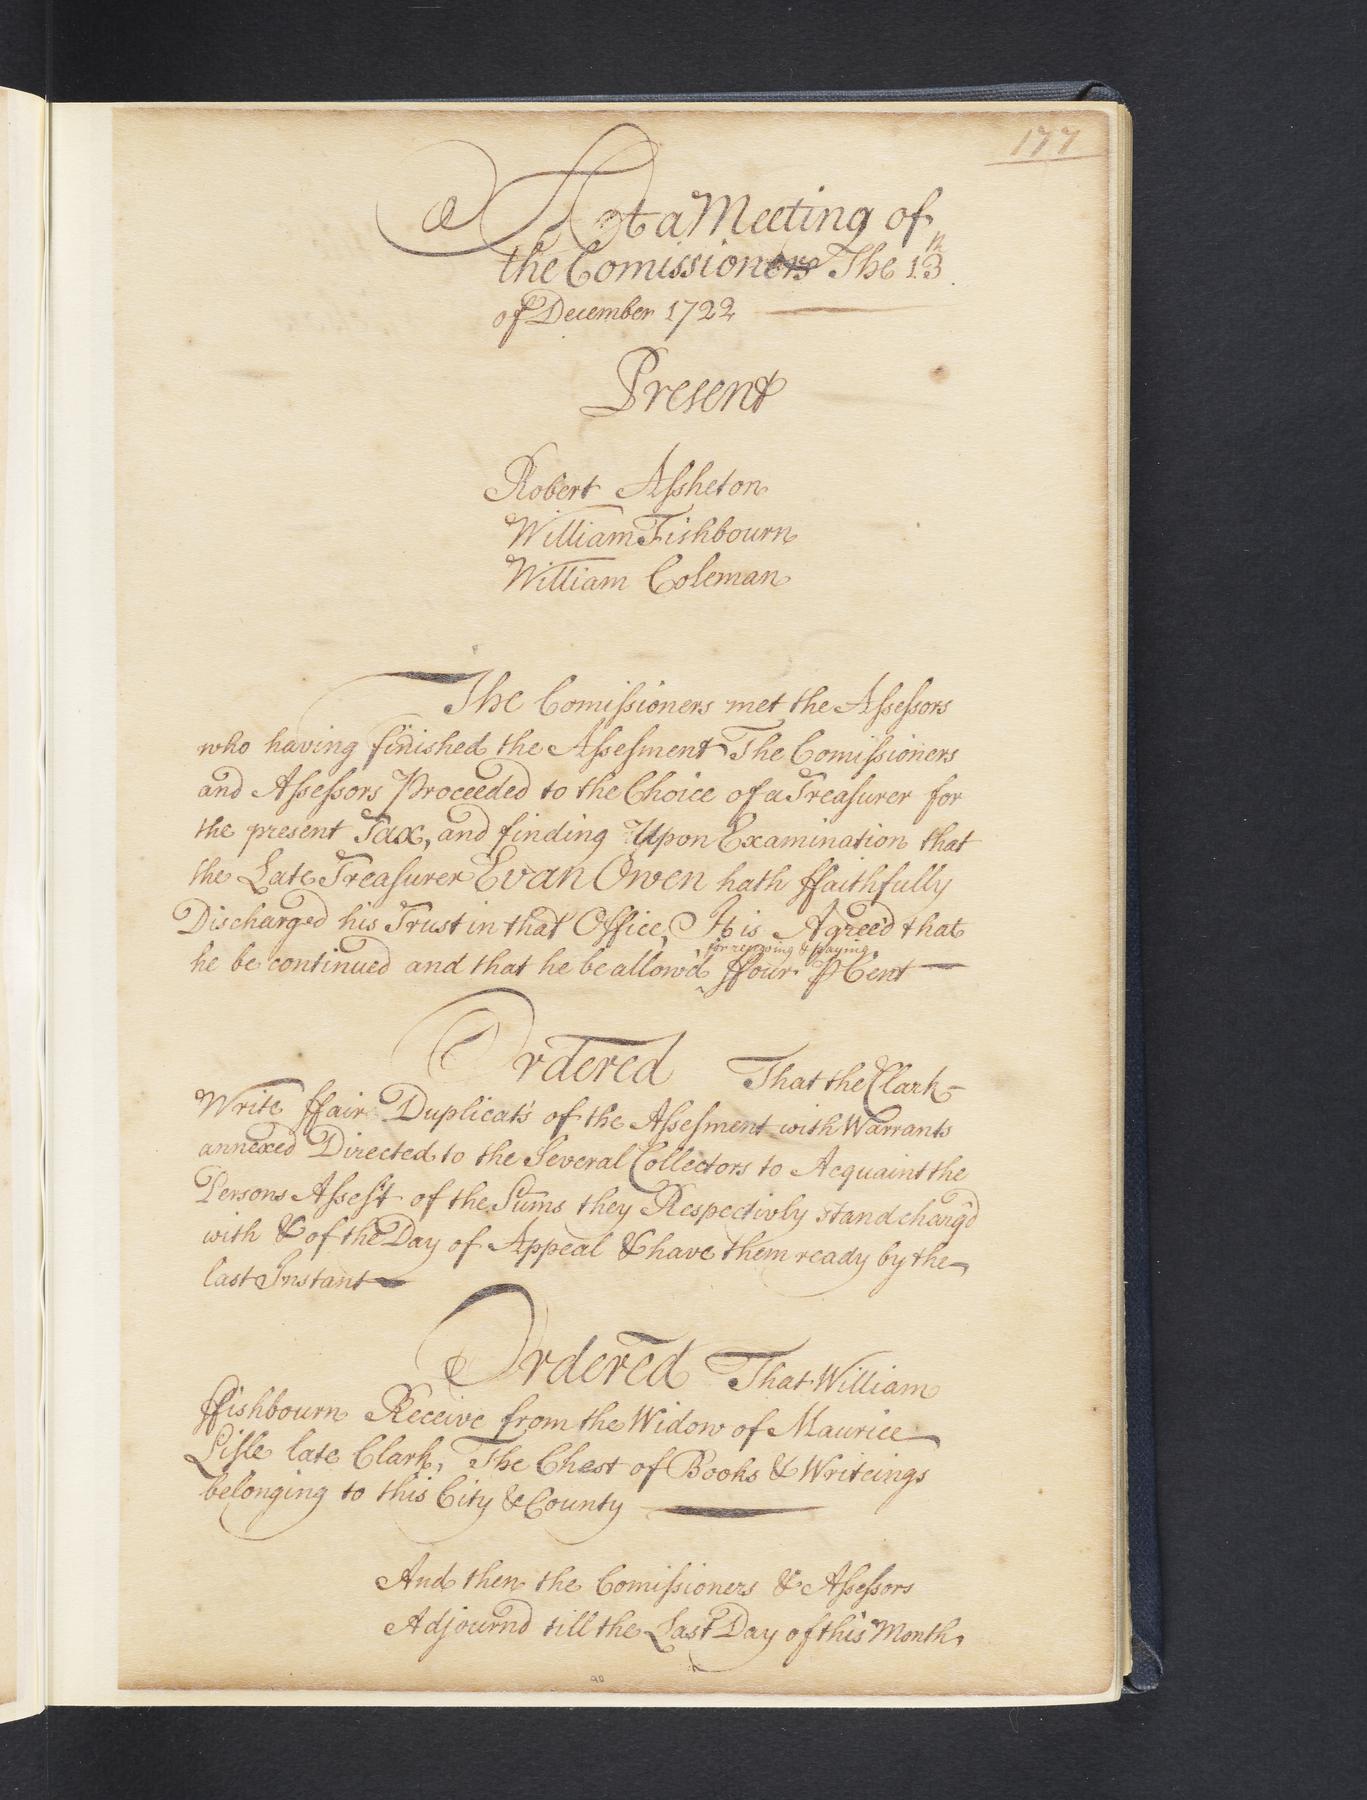 177
At a Meeting of
the Comissioners The 13th
of December 1722
Present
Robert Assheton
William Fishbourn
William Coleman
The Comissioners met the Assessors
who having finished the Assesment The Comissioners
and Assessors Proceeded to the Choice of a Treasurer for
the present Tax, and finding Upon Examination that
the Late Treasurer Evan Owen hath ffaithfully
Discharged his Trust in that Office, It is Agreed that
for receiving & paying
he be continued and that he be allow'd ^ ffour P Cent
Ordered That the Clark
Write ffair Duplicats of the Assesment with Warrants
annexed Directed to the Several Collectors to Acquaint the
Persons Assest of the Sums they Respectivly stand charg'd
with & of the Day of Appeal & have them ready by the
last Instant
Ordered That William
ffishbourn Receive from the Widow of Maurice
Lisle late Clark, The Chest of Books & Writeings
belonging to this City & County
And then the Comissioners & Assessors
Adjournd till the Last Day of this Month,